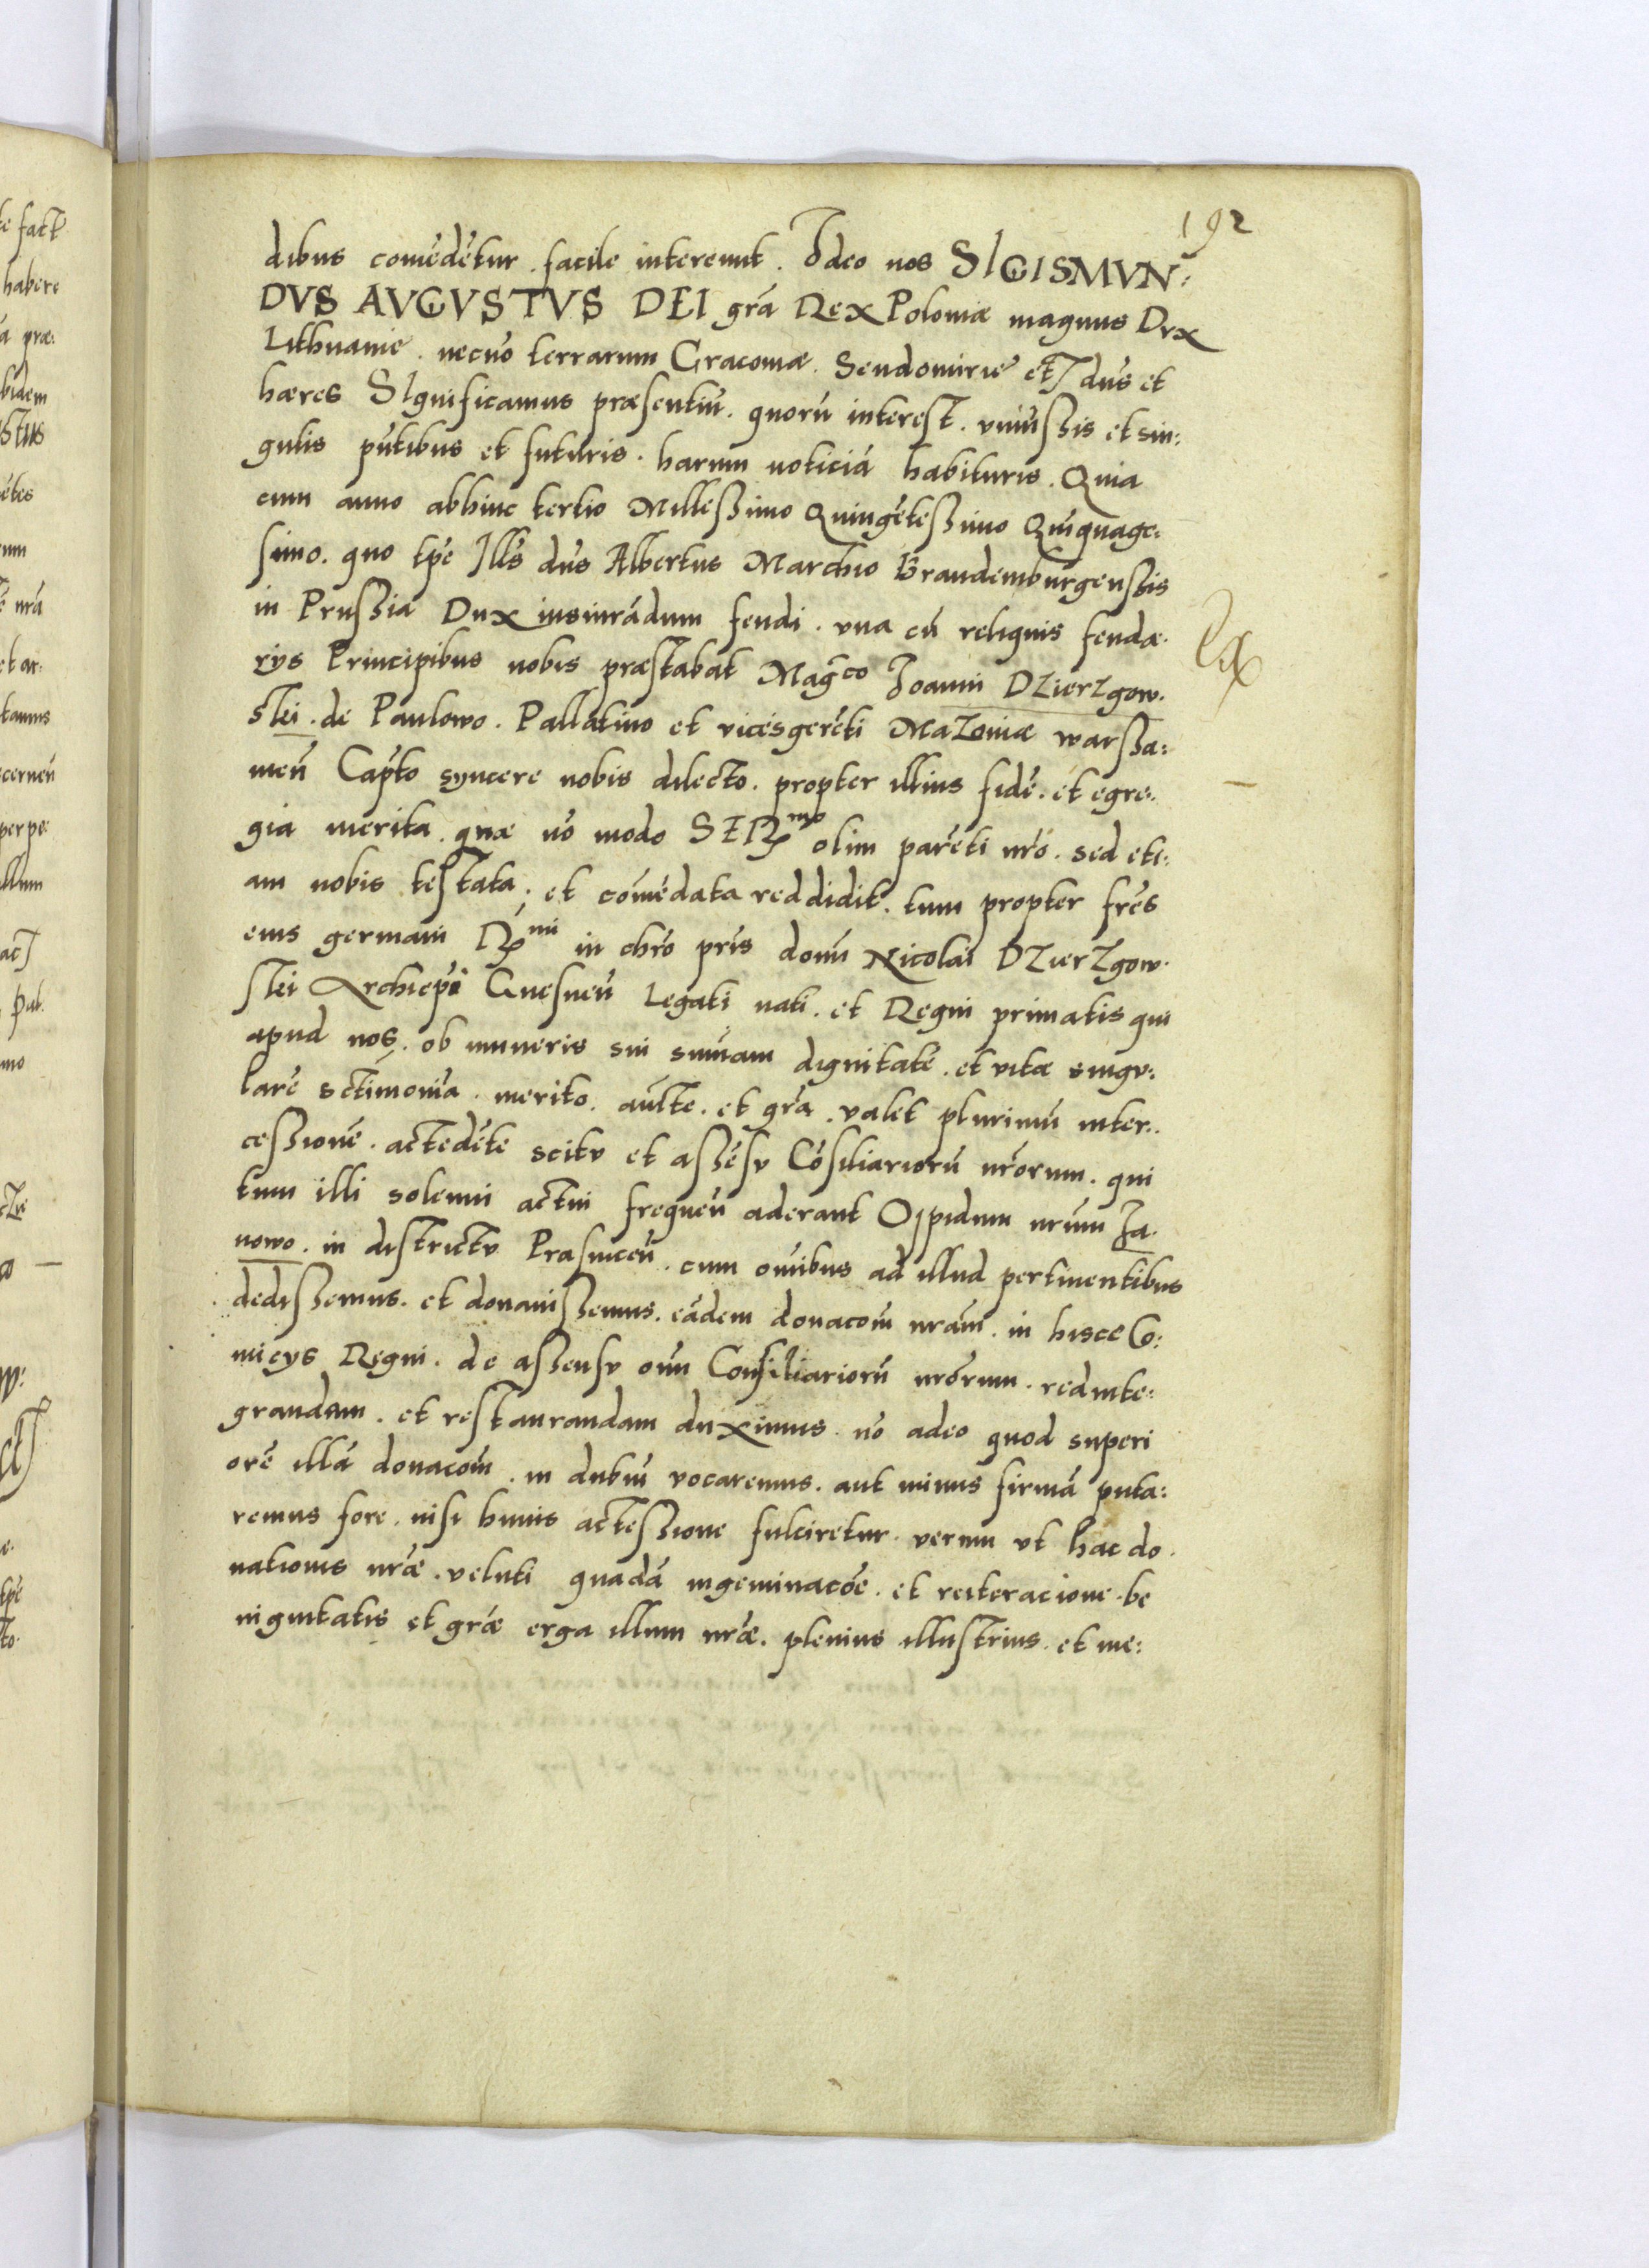 192
dibus comēdētur . facile intereunt . Ideo nos SIGISMVN:
DVS AVGVSTVS DEI grā Rex Poloniæ magnus Dux
Lithuanie . necnō terrarum Cracoviæ . Sendomirie etc dns et
hæres SIgnificamus præsentiū . quorū interest . vniūssis et sin:
gulis pn̄tibus et futuris . harum noticiā habituris . Quia
cum anno abhinc tertio Millessimo Quingētessimo Quīquage:
simo . quo tp̄e Ill̄s dn̄s Albertus Marchio Brandemburgenssis
in Prussia Dux insiurādum feudi . vna cū reliquis feuda.
rys Principibus nobis præstabat Mag̅co Joanni DZierZgow.
skei . de Paulowo . Pallatino et vicesgerēti MaZoviæ warssa:
vien̄ Capto syncere nobis dilecto . propter illius fidē . et egre:.
gia merita . quæ nō modo SERmo olim parēti nr̄o . sed eti:
am nobis testata . et cōmēdata reddidit . tum propter frēs
eius germani Rmi in chrō pris domī Nicolai DZierZgow.
skei Archiepi Gnesnen̄ Legati nati . et Regni primatis qui
apud nos . ob muneris sui summam dignitatē . et vitæ singu:
larē sctimoniā . merito . aucte . et grā . valet plurimū inter:.
cessionē . accedēte scitu et assēsu Cōsiliariorū nr̄orum . qui
tum illi solenni actui frequen̄ aderant Oppidum nr̄um Ja.
nowo . in districtu Prasnicen̄ . cum omibus ad illud pertinentibus
dedissemus . et donavissemus . eādem donacom̄ nr̄am . in hisce Co:
micys Regni . de assensu om̄ Consiliariorū nr̄orum . redinte:
grandam . et restaurandam duximus . nō adeo quod superi
orē illā donacom̄ . in dubiū vocaremus . aut minus firmā puta:
remus fore . nisi huius accessione fulciretur . verum vt hac do.
nationis nr̄æ . veluti quadā ingeminacōe . et reiteracione . be
nignitatis et grāæ erga illum nr̄æ . plenius illustrius . et me: